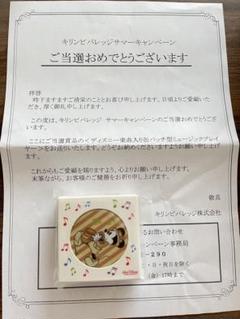 キリンビバレッジサマーキャンペーン
ご当選おめでとうございます
拝啓
時下ますますご清栄のこととお喜び申し上げます。日頃よりご愛顧いただき、厚く御礼申し上げます。
この度は、キリンビバレッジ サマーキャンペーンのご当選おめでとうございます。
ここにご当選賞品の<ディズニー楽曲入り缶バッチ型ミュージックプレイヤー>をお送りいたします。どうぞお納めくださいますようお願い申し上げます。
これからもご愛顧を賜りますよう、心よりお願い申し上げます。
末筆ながら、お客様のご健勝をお祈り申し上げます。
敬具
キリンビバレッジ株式会社
るお問い合わせ
ャンペーン事務局
－290
・日・祝日を除く
(金) 17時まで